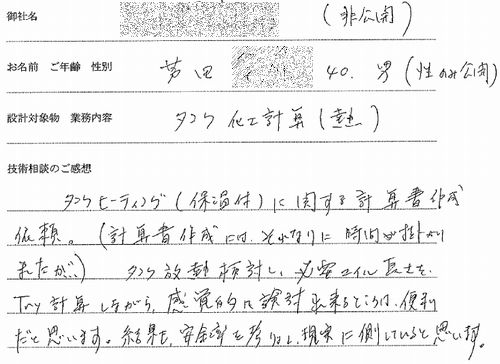 御社名 (非公開)
お名前 ご年齢 性別 芦田 40. 男 (性のみ公開)
設計対象物 業務内容 タンク 化工計算 (熱)
技術相談のご感想
タンクヒーティング (保温付) に関する計算書作成
依頼。(計算書作成には、それなりに時間が掛かり
ましたが、) タンク放熱検討し、必要コイル長さを、
Try計算しながら、感覚的に検討出来るところは、便利
だと思います。結果も、安全率を考りょし、現実に側していると思います。